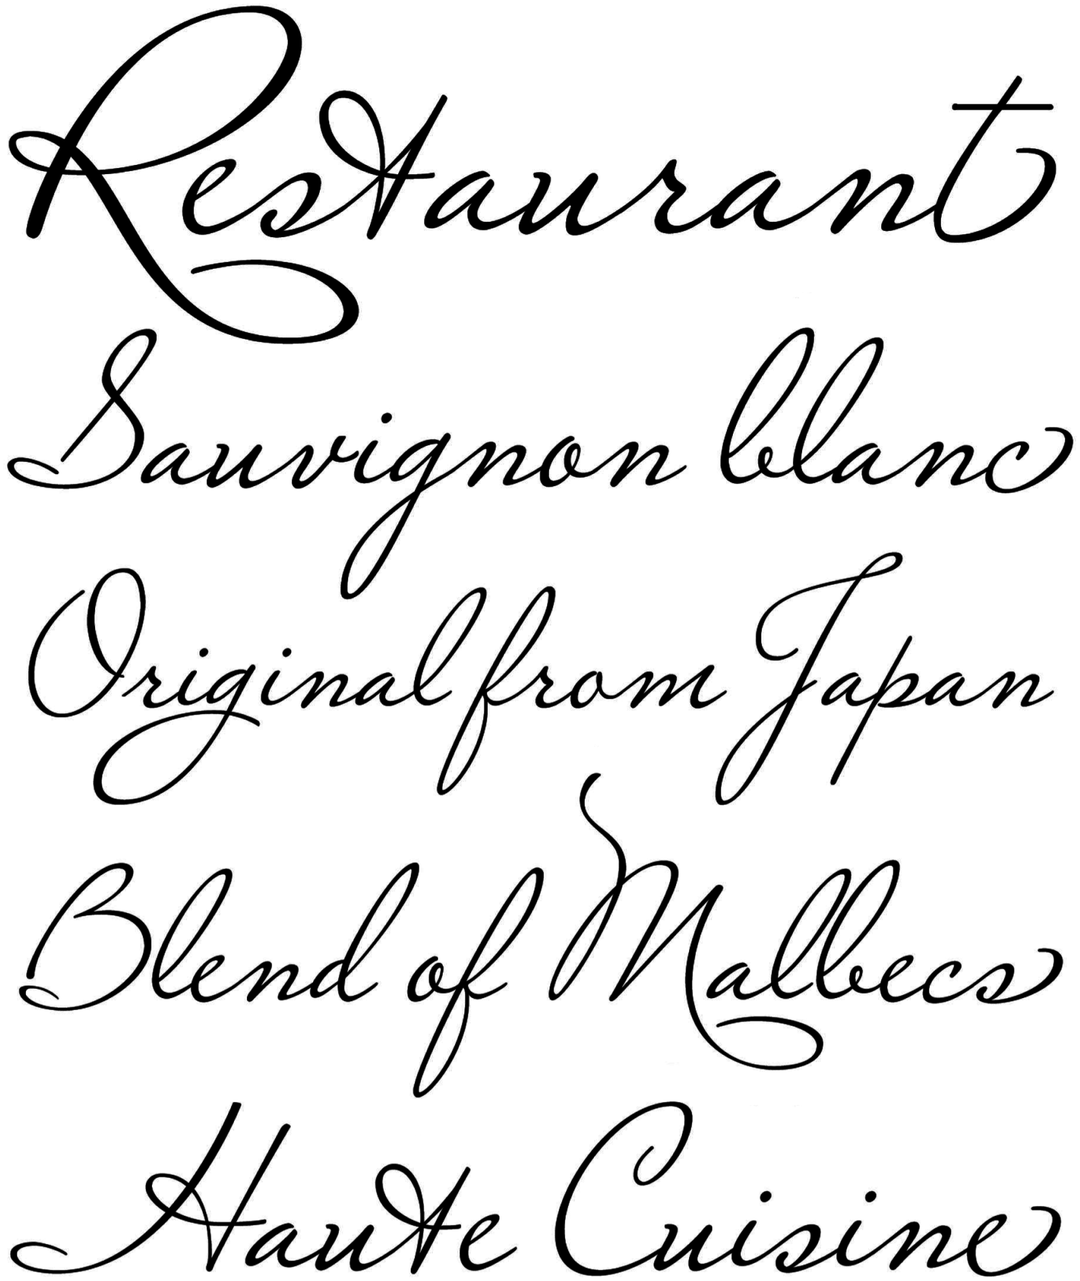 Restaurant
Sauvignon blanc
Original from Japan
Blend of Malbecs
Haute Cuisine